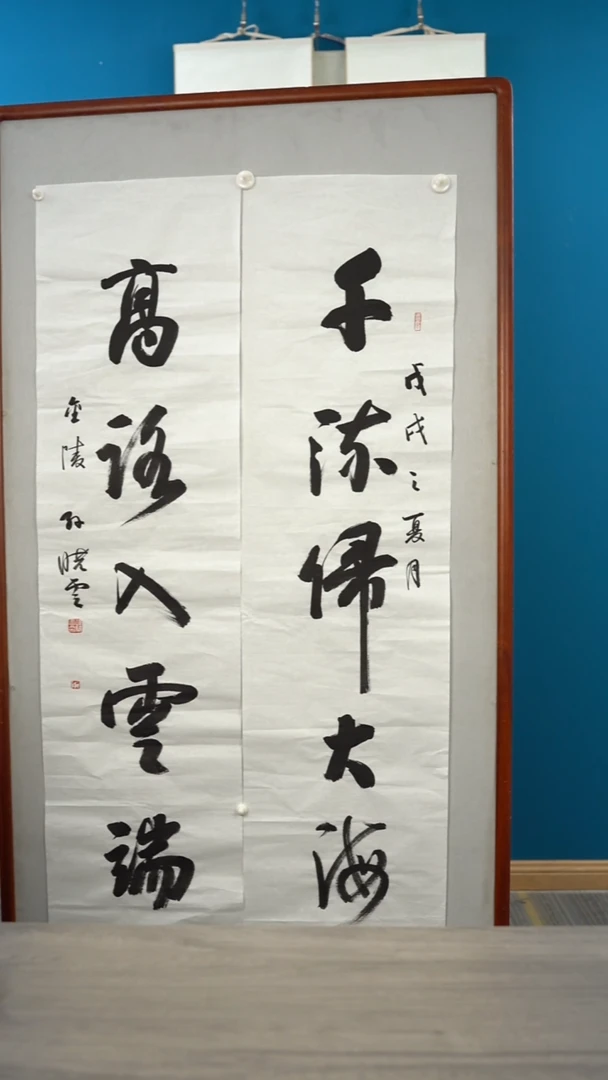 千流歸大海
戊戌之夏月
高路入雲端
金陵孙曉雲